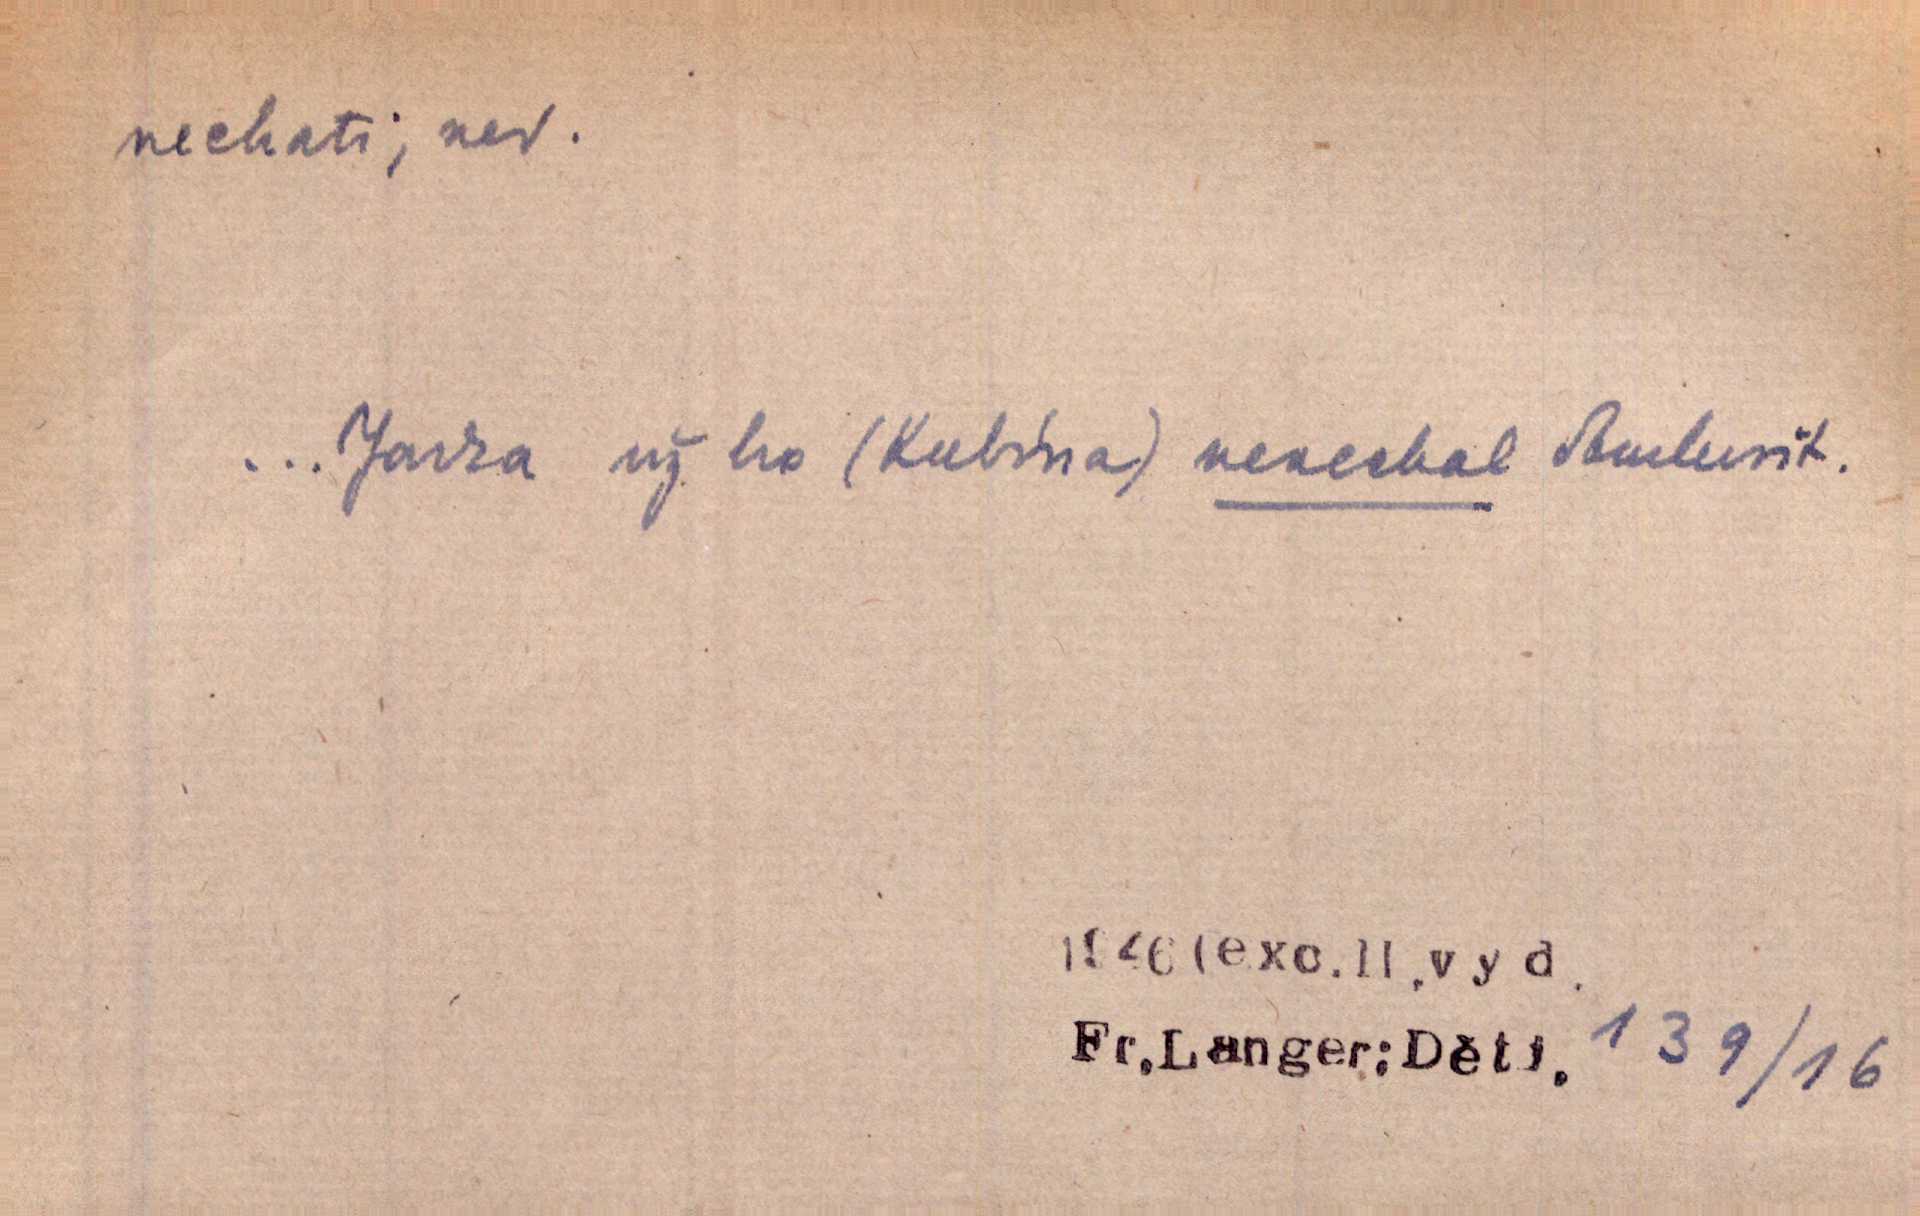 nechati; ned.
...Jarka už ho (Kubína) nenechal domluvit.
1946 (exc. II. vyd.
Fr. Langer: Děti. 139/16